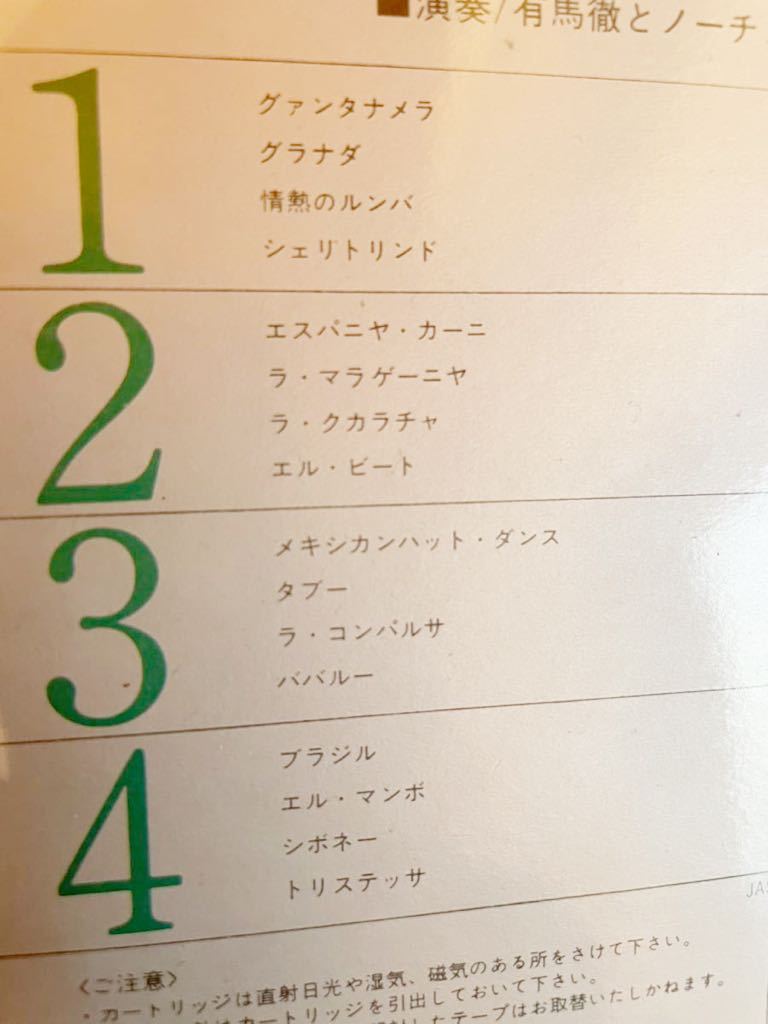 ■演奏/有馬徹とノーチ
1
グァンタナメラ
グラナダ
情熱のルンバ
シェリトリンド
2
エスパニヤ・カーニ
ラ・マラゲーニヤ
ラ・クカラチャ
エル・ビート
3
メキシカンハット・ダンス
タブー
ラ・コンパルサ
ババルー
4
ブラジル
エル・マンボ
シボネー
トリステッサ
JAS
〈ご注意〉
・カートリッジは直射日光や湿気、磁気のある所をさけて下さい。
はカートリッジを引出しておいて下さい。
したテープはお取替いたしかねます。